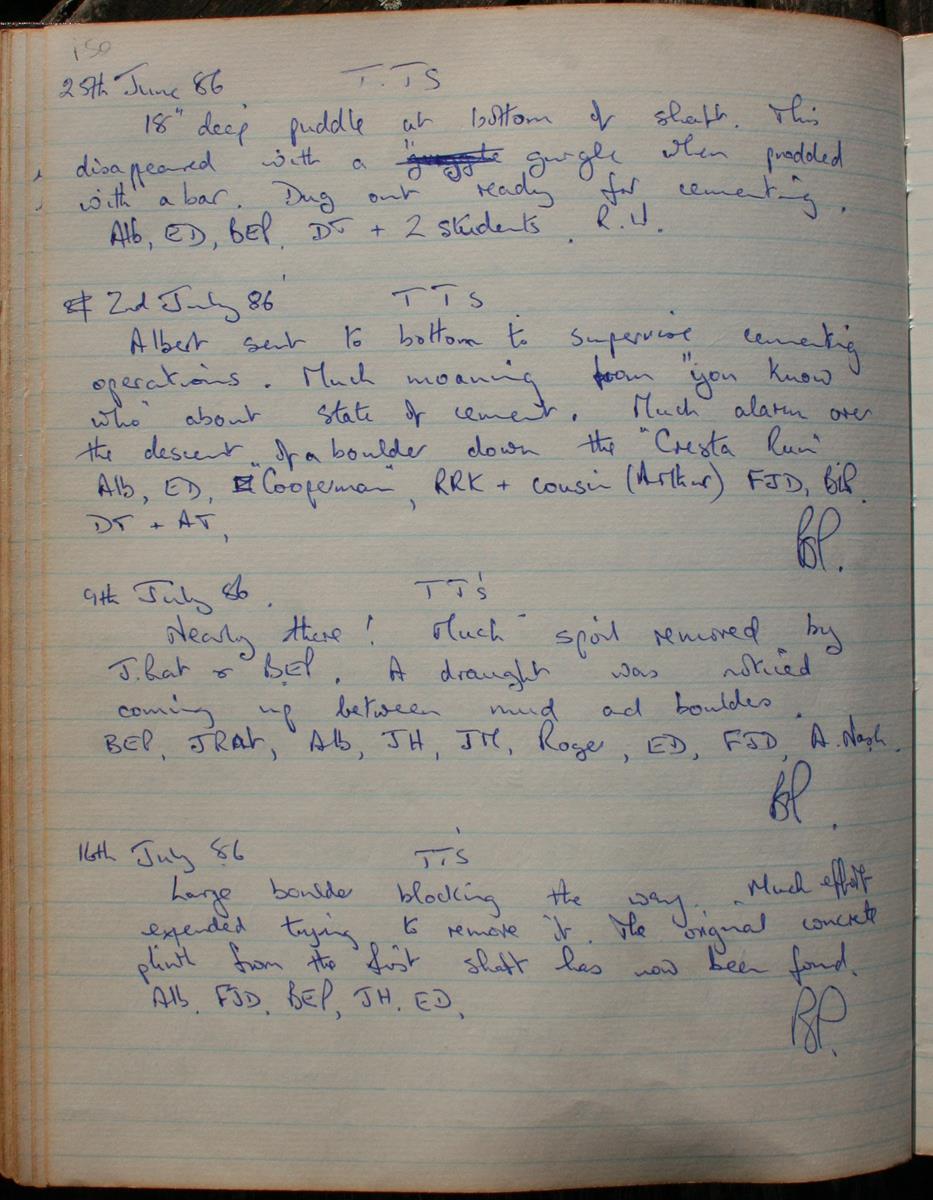 150
25th June 86 T.TS
18" deep puddle at bottom of shaft. This
disappeared with a gurgle when prodded
with a bar. Dug out ready for cementing.
Alb, ED, BEP, DT + 2 students. R.W.
2nd July 86 TTS
Albert sent to bottom to supervise cementing
operations. Much moaning from "you know
who" about state of cement. Much alarm over
the descent of a boulder down the "Cresta Run"
Alb, ED, "Cooperman", RRK + cousin (Arthur) FJD, BEP.
DT + AT,
BP.
9th July 86. TT's
Nearly there! Much spoil removed by
J.Rat & BEP. A draught was noticed
coming up between mud and boulders.
BEP, JRAt, Alb, JH, JM, Roger, ED, FJD, A. Nash.
BP.
16th July 86 TT'S
Large boulder blocking the way. Much effort
expended trying to remove it. The original concrete
plinth from the first shaft has now been found.
Alb. FJD. BEP, JH. ED,
BP.